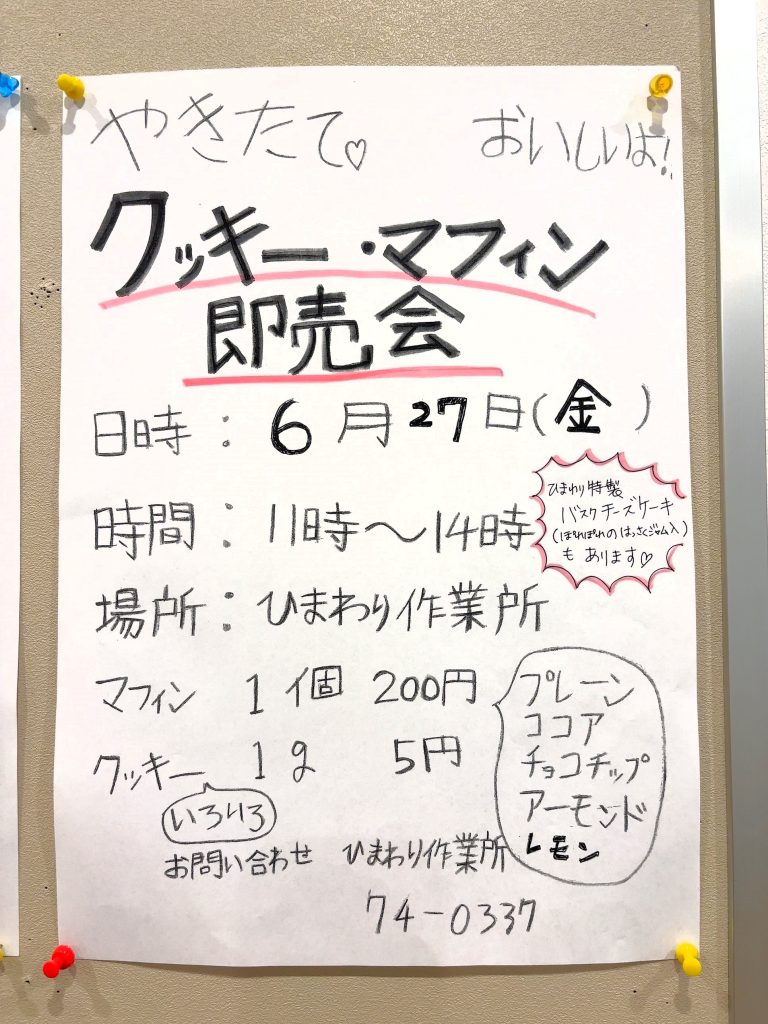 やきたて♡ おいしいよ!!
クッキー・マフィン
即売会
日時：6月27日(金)
ひまわり特製
バスクチーズケーキ
(ぽれぽれのはっさくジャム入)
もあります♡
時間：11時～14時
場所：ひまわり作業所
マフィン 1個 200円
プレーン
ココア
チョコチップ
アーモンド
レモン
クッキー 1g 5円
いろいろ
お問い合わせ ひまわり作業所
74-0337